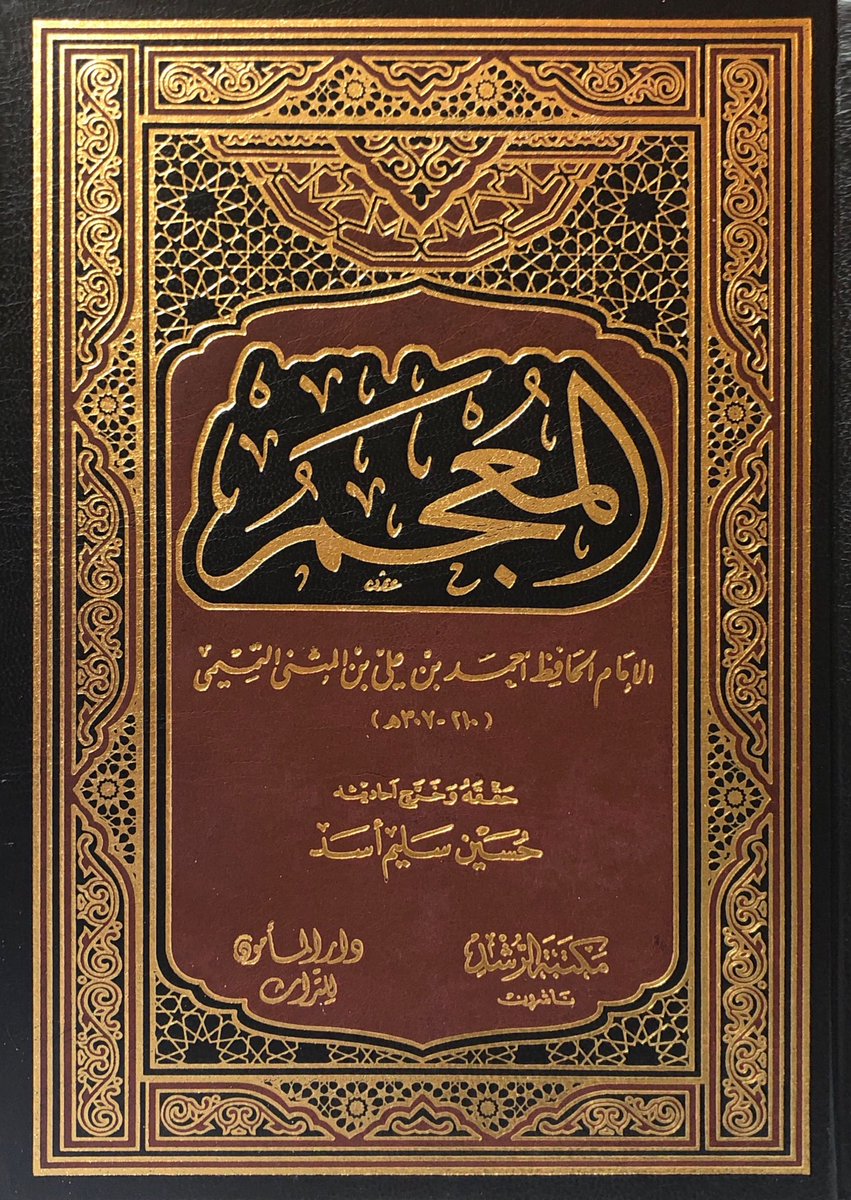 المُعْجَمُ
الإمام الحافظ أحمد بن علي بن المثنى التميمي
(٢١٠-٣٠٧هـ)
حَقّقَهُ وَخَرَّجَ أحَاديثه
حُسَيْن سَليم أسَد
مكتبة الرشد
ناشرون
دار المأمون
للتراث